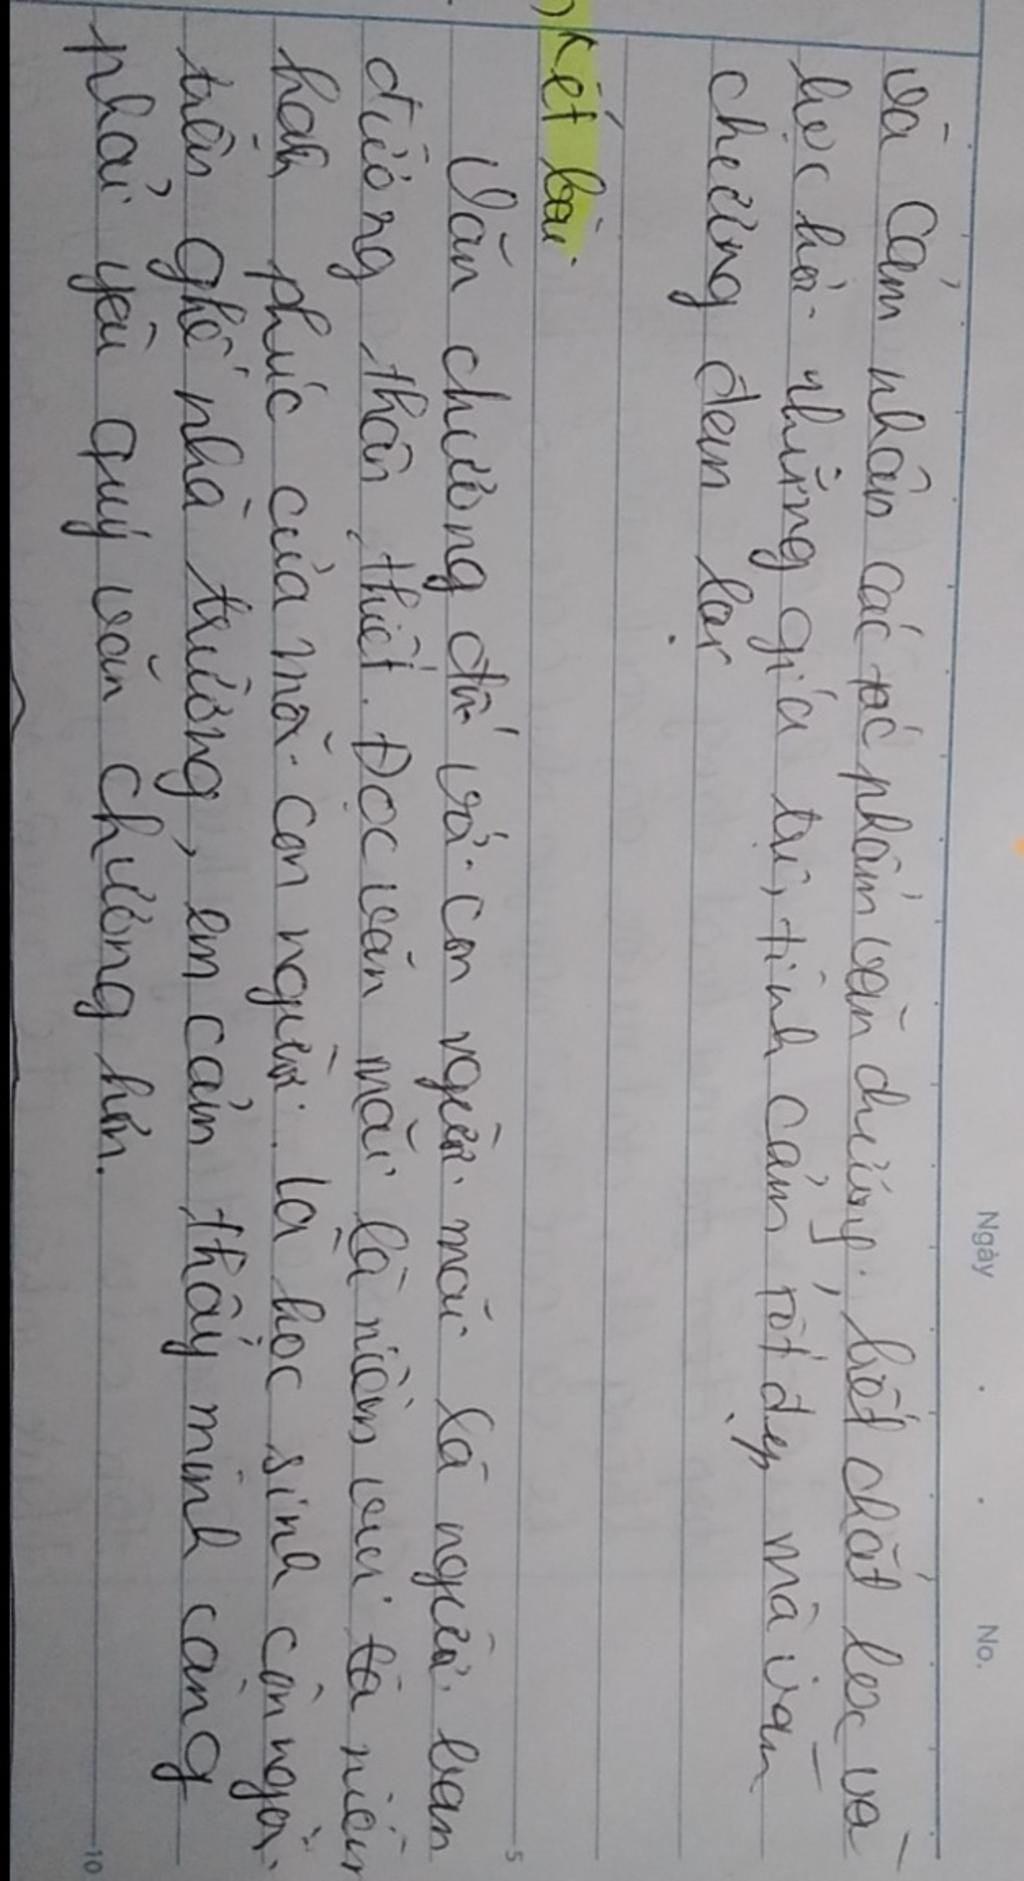 Ngày . . No.
và cảm nhận các tác phẩm văn chương, biết chắt lọc và
học hỏi những giá trị, tình cảm tốt đẹp mà văn
chương đem lại
) Kết bài
5
Văn chương đối với con người mãi là người bạn
đường thân thiết. Đọc văn mãi là niềm vui là niềm
hạnh phúc của mỗi con người. là học sinh còn ngồi
trên ghế nhà trường, em cảm thấy mình càng
phải yêu quý văn chương hơn.
10